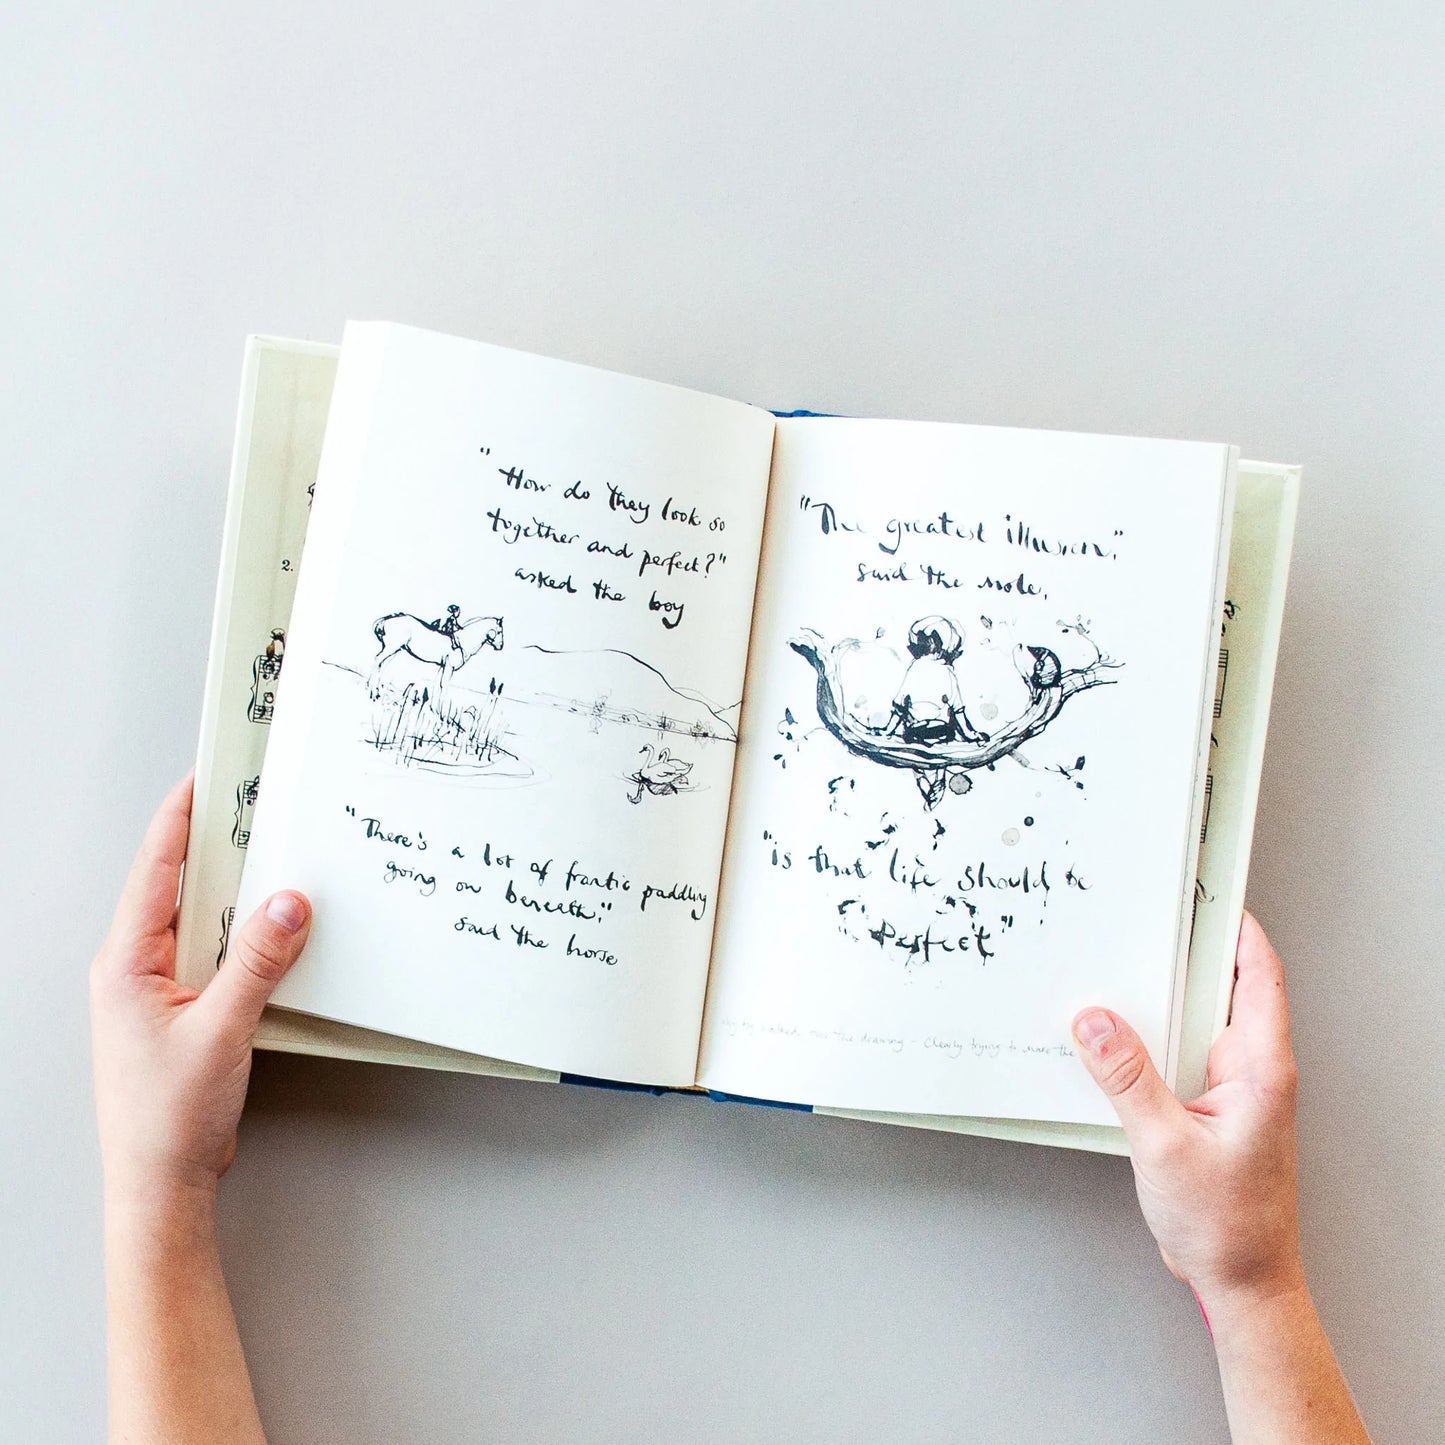 2.
"How do they look so
together and perfect?"
asked the boy
"There's a lot of frantic paddling
going on beneath."
said the horse
"The greatest illusion,"
said the mole,
"is that life should be
perfect"
walked over the drawing - clearly trying to make the